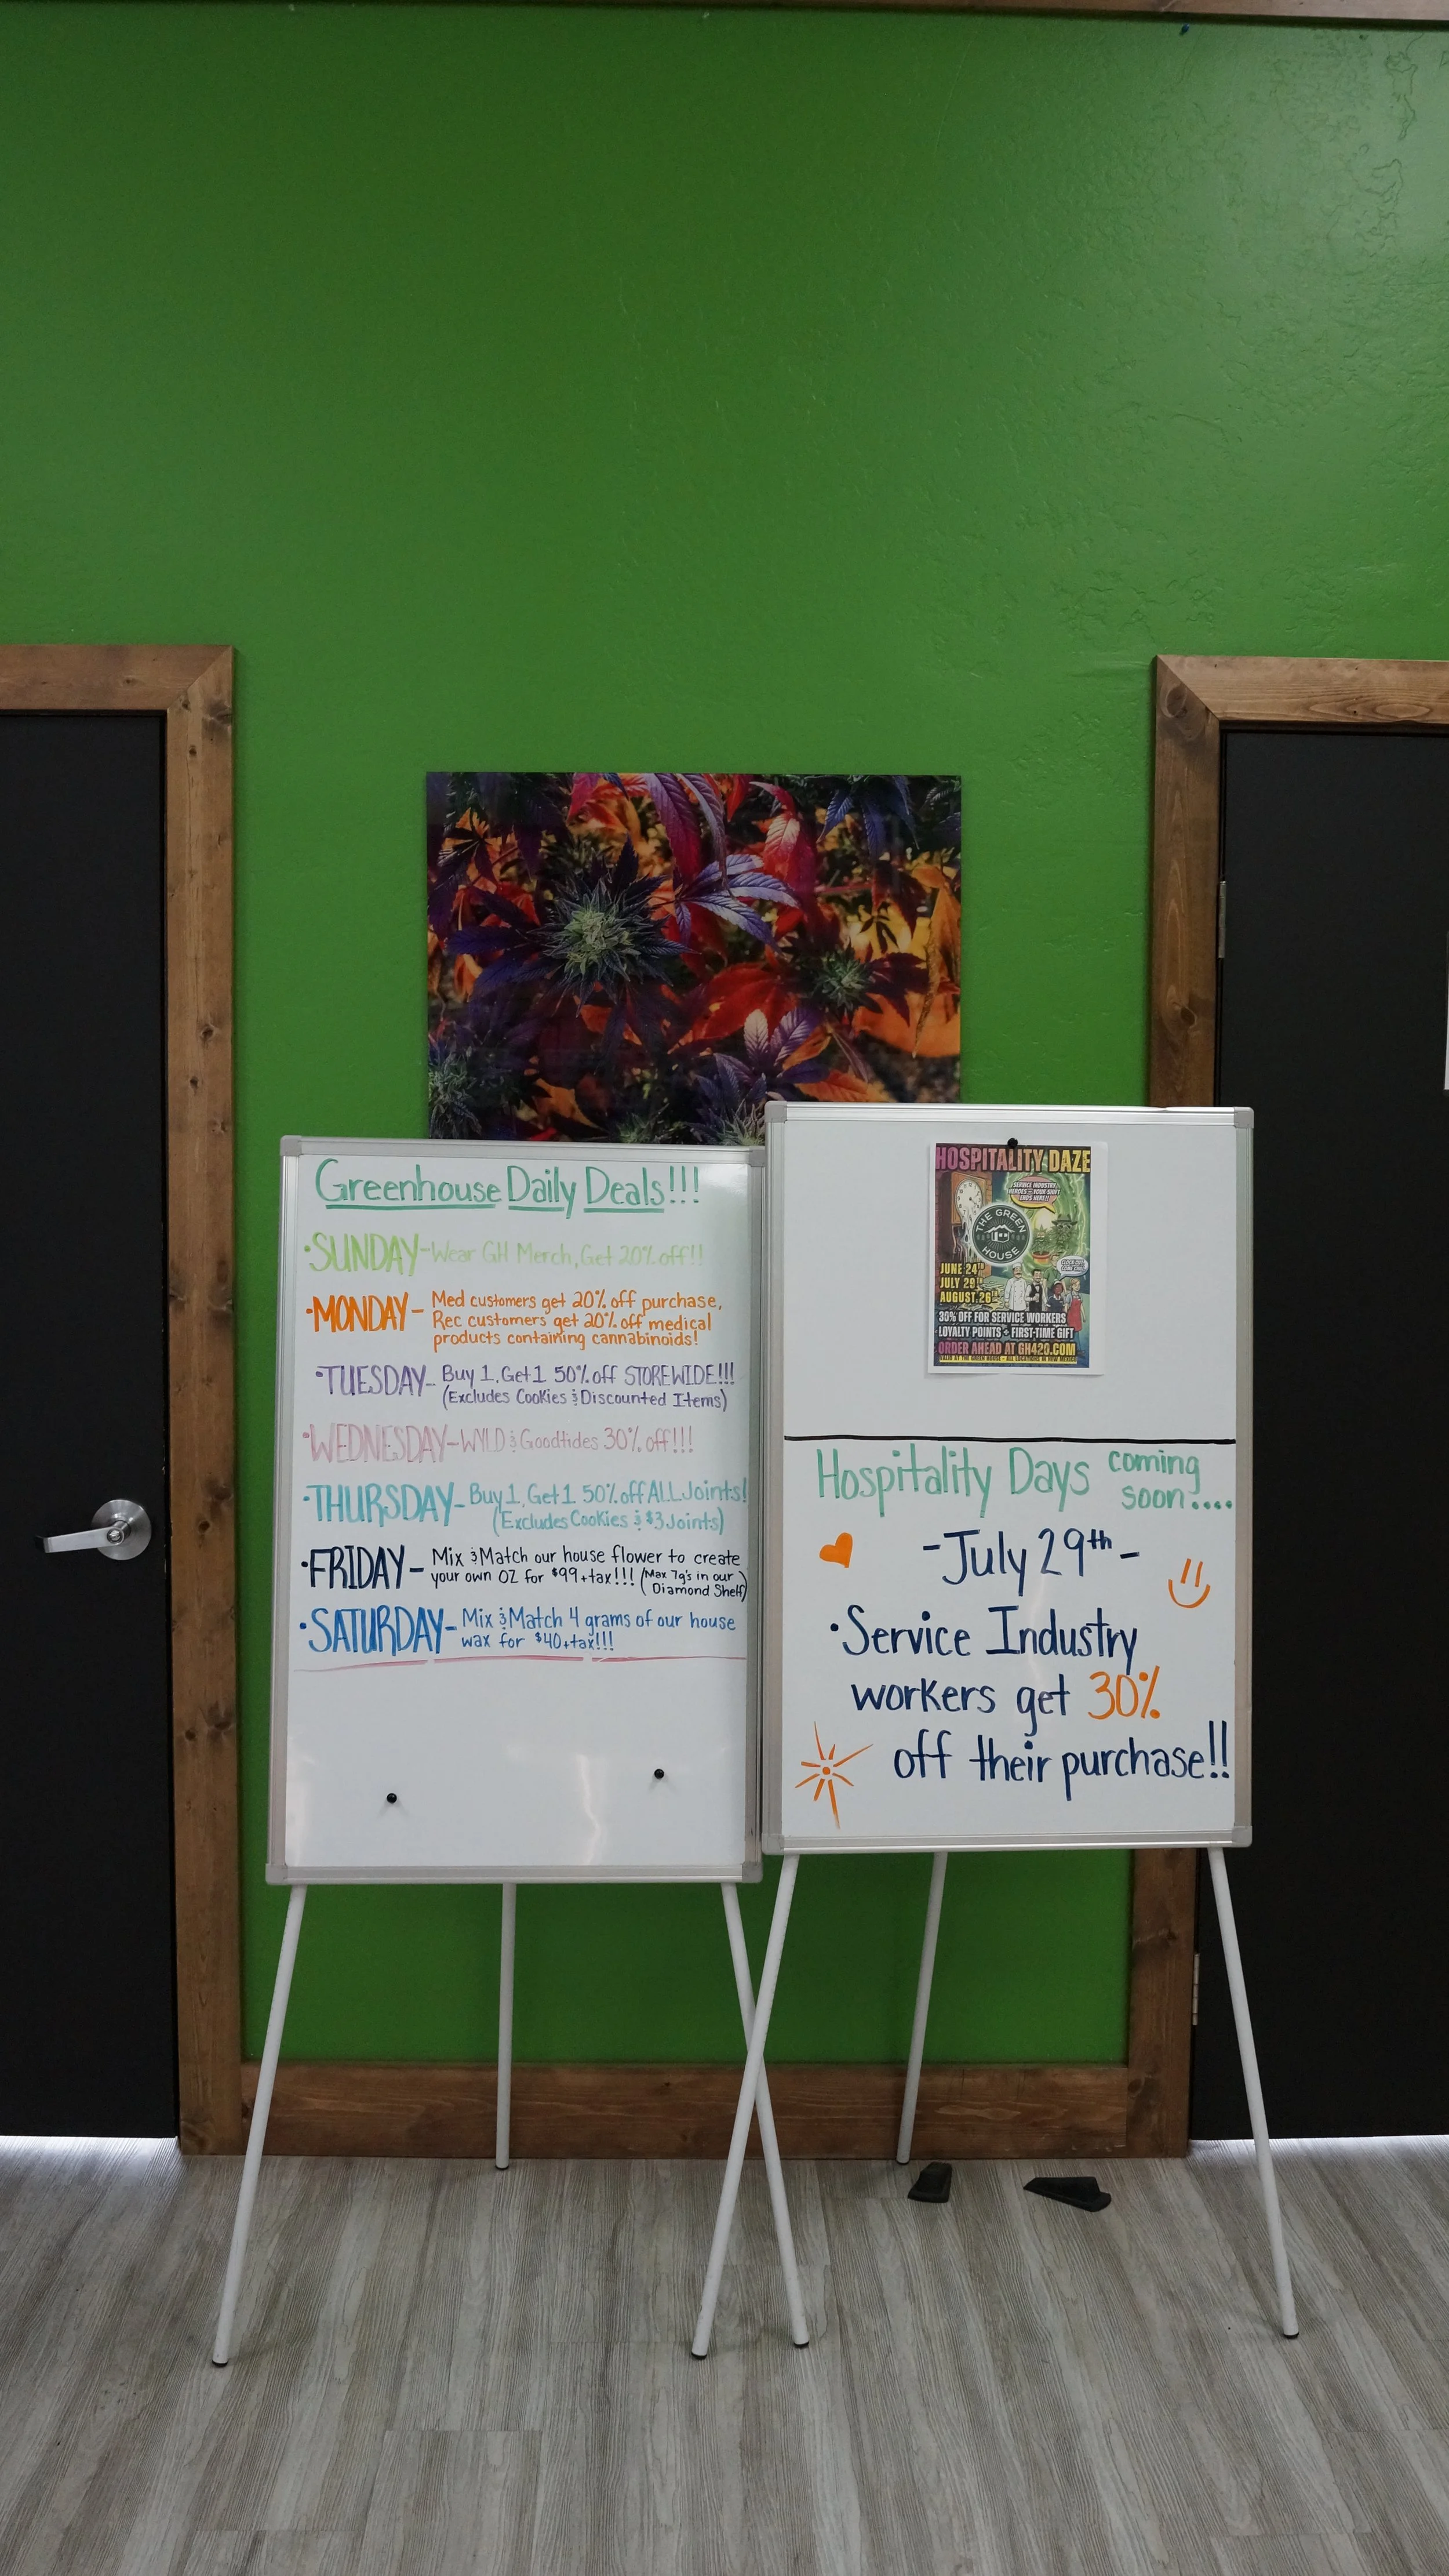 Greenhouse Daily Deals!!!
•SUNDAY-Wear GH Merch, Get 20% off!!
•MONDAY- Med customers get 20% off purchase,
Rec customers get 20% off medical
products containing cannabinoids!
•TUESDAY- Buy 1, Get 1 50% off STOREWIDE!!!
(Excludes Cookies & Discounted Items)
•WEDNESDAY-WYLD & Goodtides 30% off!!!
•THURSDAY- Buy 1, Get 1 50% off ALL Joints!
(Excludes Cookies & $3 Joints)
•FRIDAY- Mix & Match our house flower to create
your own OZ for $99+tax!!! (Max 7g's in our
Diamond Shelf)
•SATURDAY- Mix & Match 4 grams of our house
wax for $40+tax!!!
HOSPITALITY DAZE
SERVICE INDUSTRY
HEROES - YOUR SHIFT
ENDS HERE!
THE GREEN
HOUSE
JUNE 24TH
JULY 29TH
AUGUST 26TH
30% OFF FOR SERVICE WORKERS
LOYALTY POINTS + FIRST-TIME GIFT
ORDER AHEAD AT GH420.COM
VALID AT THE GREEN HOUSE - ALL LOCATIONS IN NEW MEXICO
Hospitality Days coming
soon....
-July 29th-
•Service Industry
workers get 30%
off their purchase!!